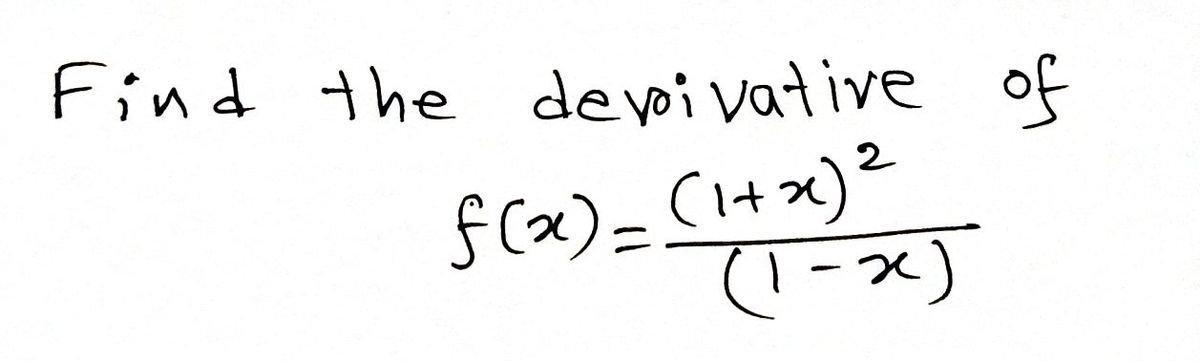 Find the derivative of
f(x) = (1+x)² / (1-x)